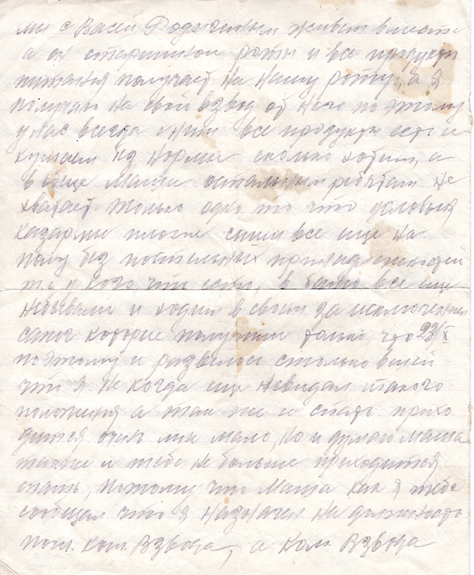 мы с Васей Родичкиным живем вместе
а он старшиной роты и все продукты
питания получает на нашу роту, а я
получаю на свой взвод от него поэтому
у нас всегда Маша все продукты есть и
кушаем без нормы сколько хотим, а
вообще Маша остальным ребятам не
хватает. Только одно то что условия
казармы плохие спим все еще на
полу без постельных принадлежностей
то у кого что есть, в бане все еще
небывали и ходим в своем за исключением
сапог которые получили только что 23/X
поэтому и развелось столько вшей
что я не когда еще невидал такого
положения а так же и спать прихо
дится очень мне мало, но я думаю Маша
также и тебе не больше приходится
спать, потому что Маша как я тебе
сообщал что я назначен на должность
пом. ком взвода, а ком взвода